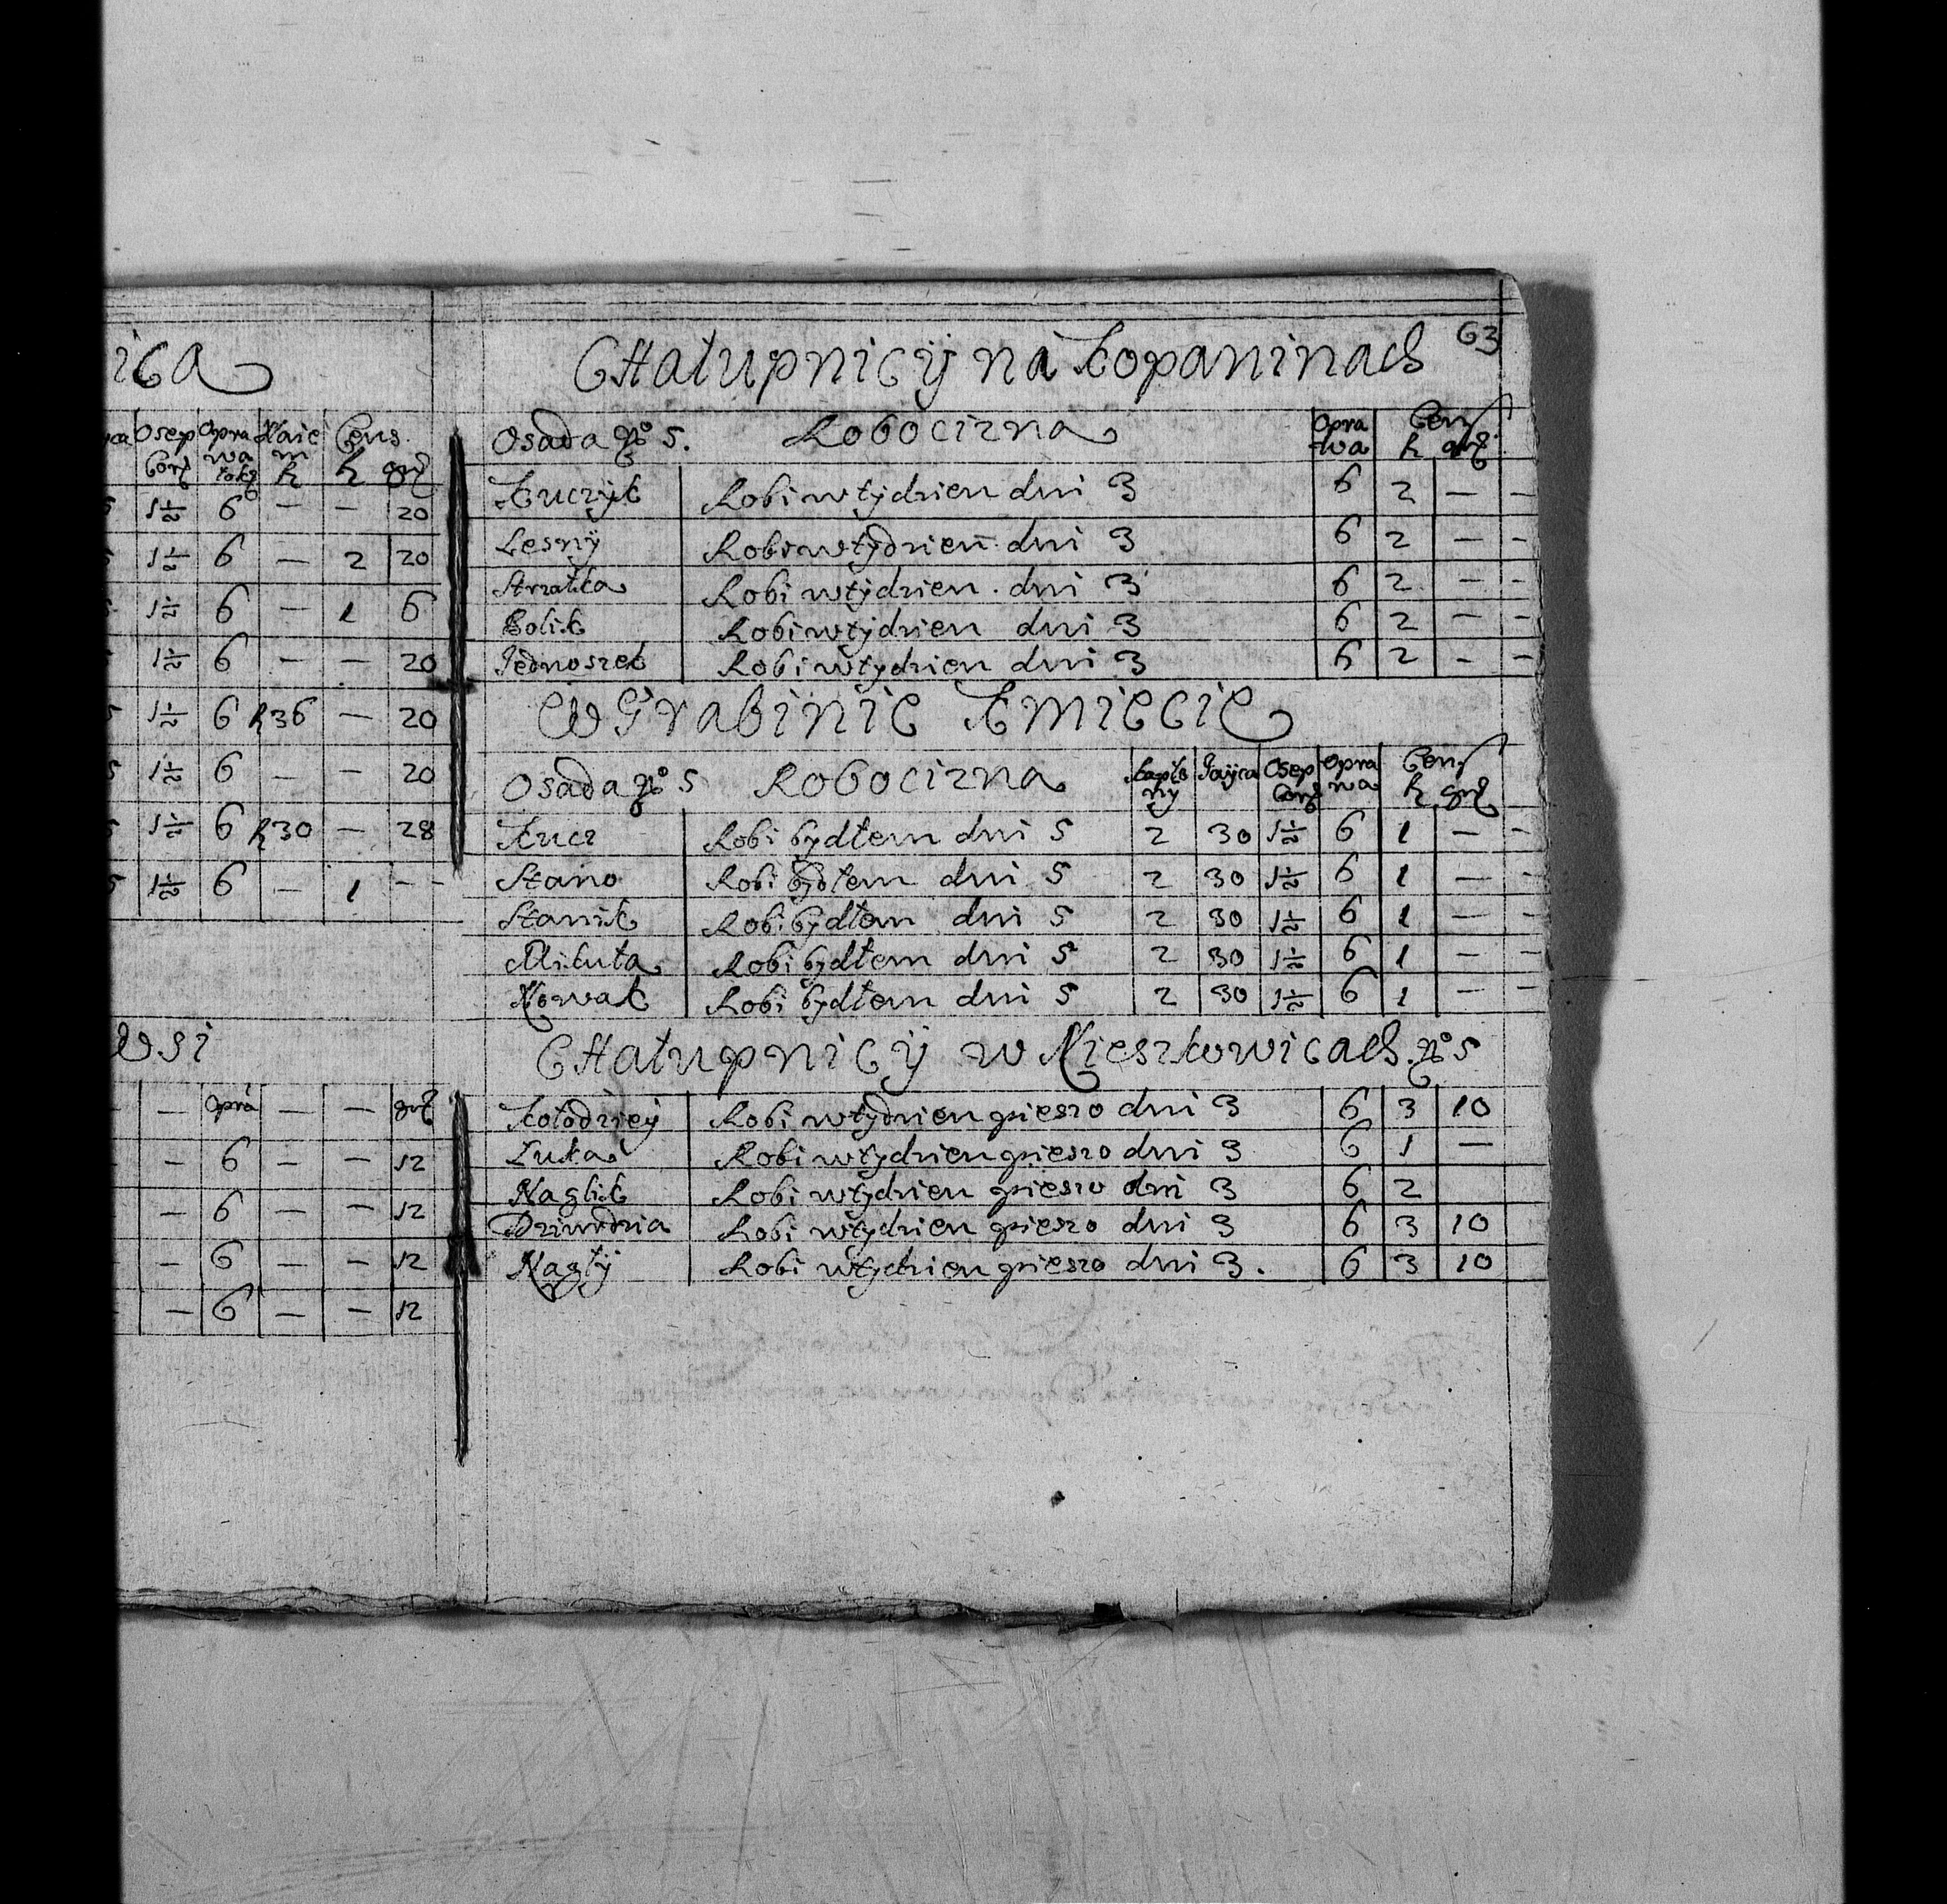 ica
Osep Opra Naie Cens.
Corż wa m
łokż h h grż
1½ 6 — — 20
1½ 6 — 2 20
1½ 6 — 1 6
1½ 6 — — 20
1½ 6 h36 — 20
1½ 6 — — 20
1½ 6 h30 — 28
1½ 6 — 1 - -
Wsi
— — opra — — grż
— 6 — — 12
— 6 — — 12
— 6 — — 12
— 6 — — 12
63
CHałupnicÿ na Kopaninach
Osada No 5. Robocizna Opra Cens
wa h grż
Kuczÿk Robi w tÿdzien dni 3 6 2 — —
Lesnÿ Robi w tÿdzien dni 3 6 2 — —
Strzałka Robi w tÿdzien dni 3 6 2 — —
Bolik Robi w tÿdzien dni 3 6 2 — —
Jednoszek Robi w tÿdzien dni 3 6 2 — —
W Grabinie Kmiecie
Osada No 5 Robocizna Kapło Jaÿca Osep Opra Cens
ny Corż wa h grż
Kucz Robi bydłem dni 5 2 30 1½ 6 1 — —
Stano Robi bydłem dni 5 2 30 1½ 6 1 — —
Stanik Robi bydłem dni 5 2 30 1½ 6 1 — —
Mikuła Robi bydłem dni 5 2 30 1½ 6 1 — —
Nowak Robi bydłem dni 5 2 30 1½ 6 1 — —
CHałupnicÿ w Nieszkowicach No 5
Kołodzieÿ Robi w tÿdzien pieszo dni 3 6 3 10
Luka Robi w tÿdzien pieszo dni 3 6 1 —
Naglik Robi w tÿdzien pieszo dni 3 6 2
Dziwdzia Robi w tÿdzien pieszo dni 3 6 3 10
Nagłÿ Robi w tÿdzien pieszo dni 3. 6 3 10